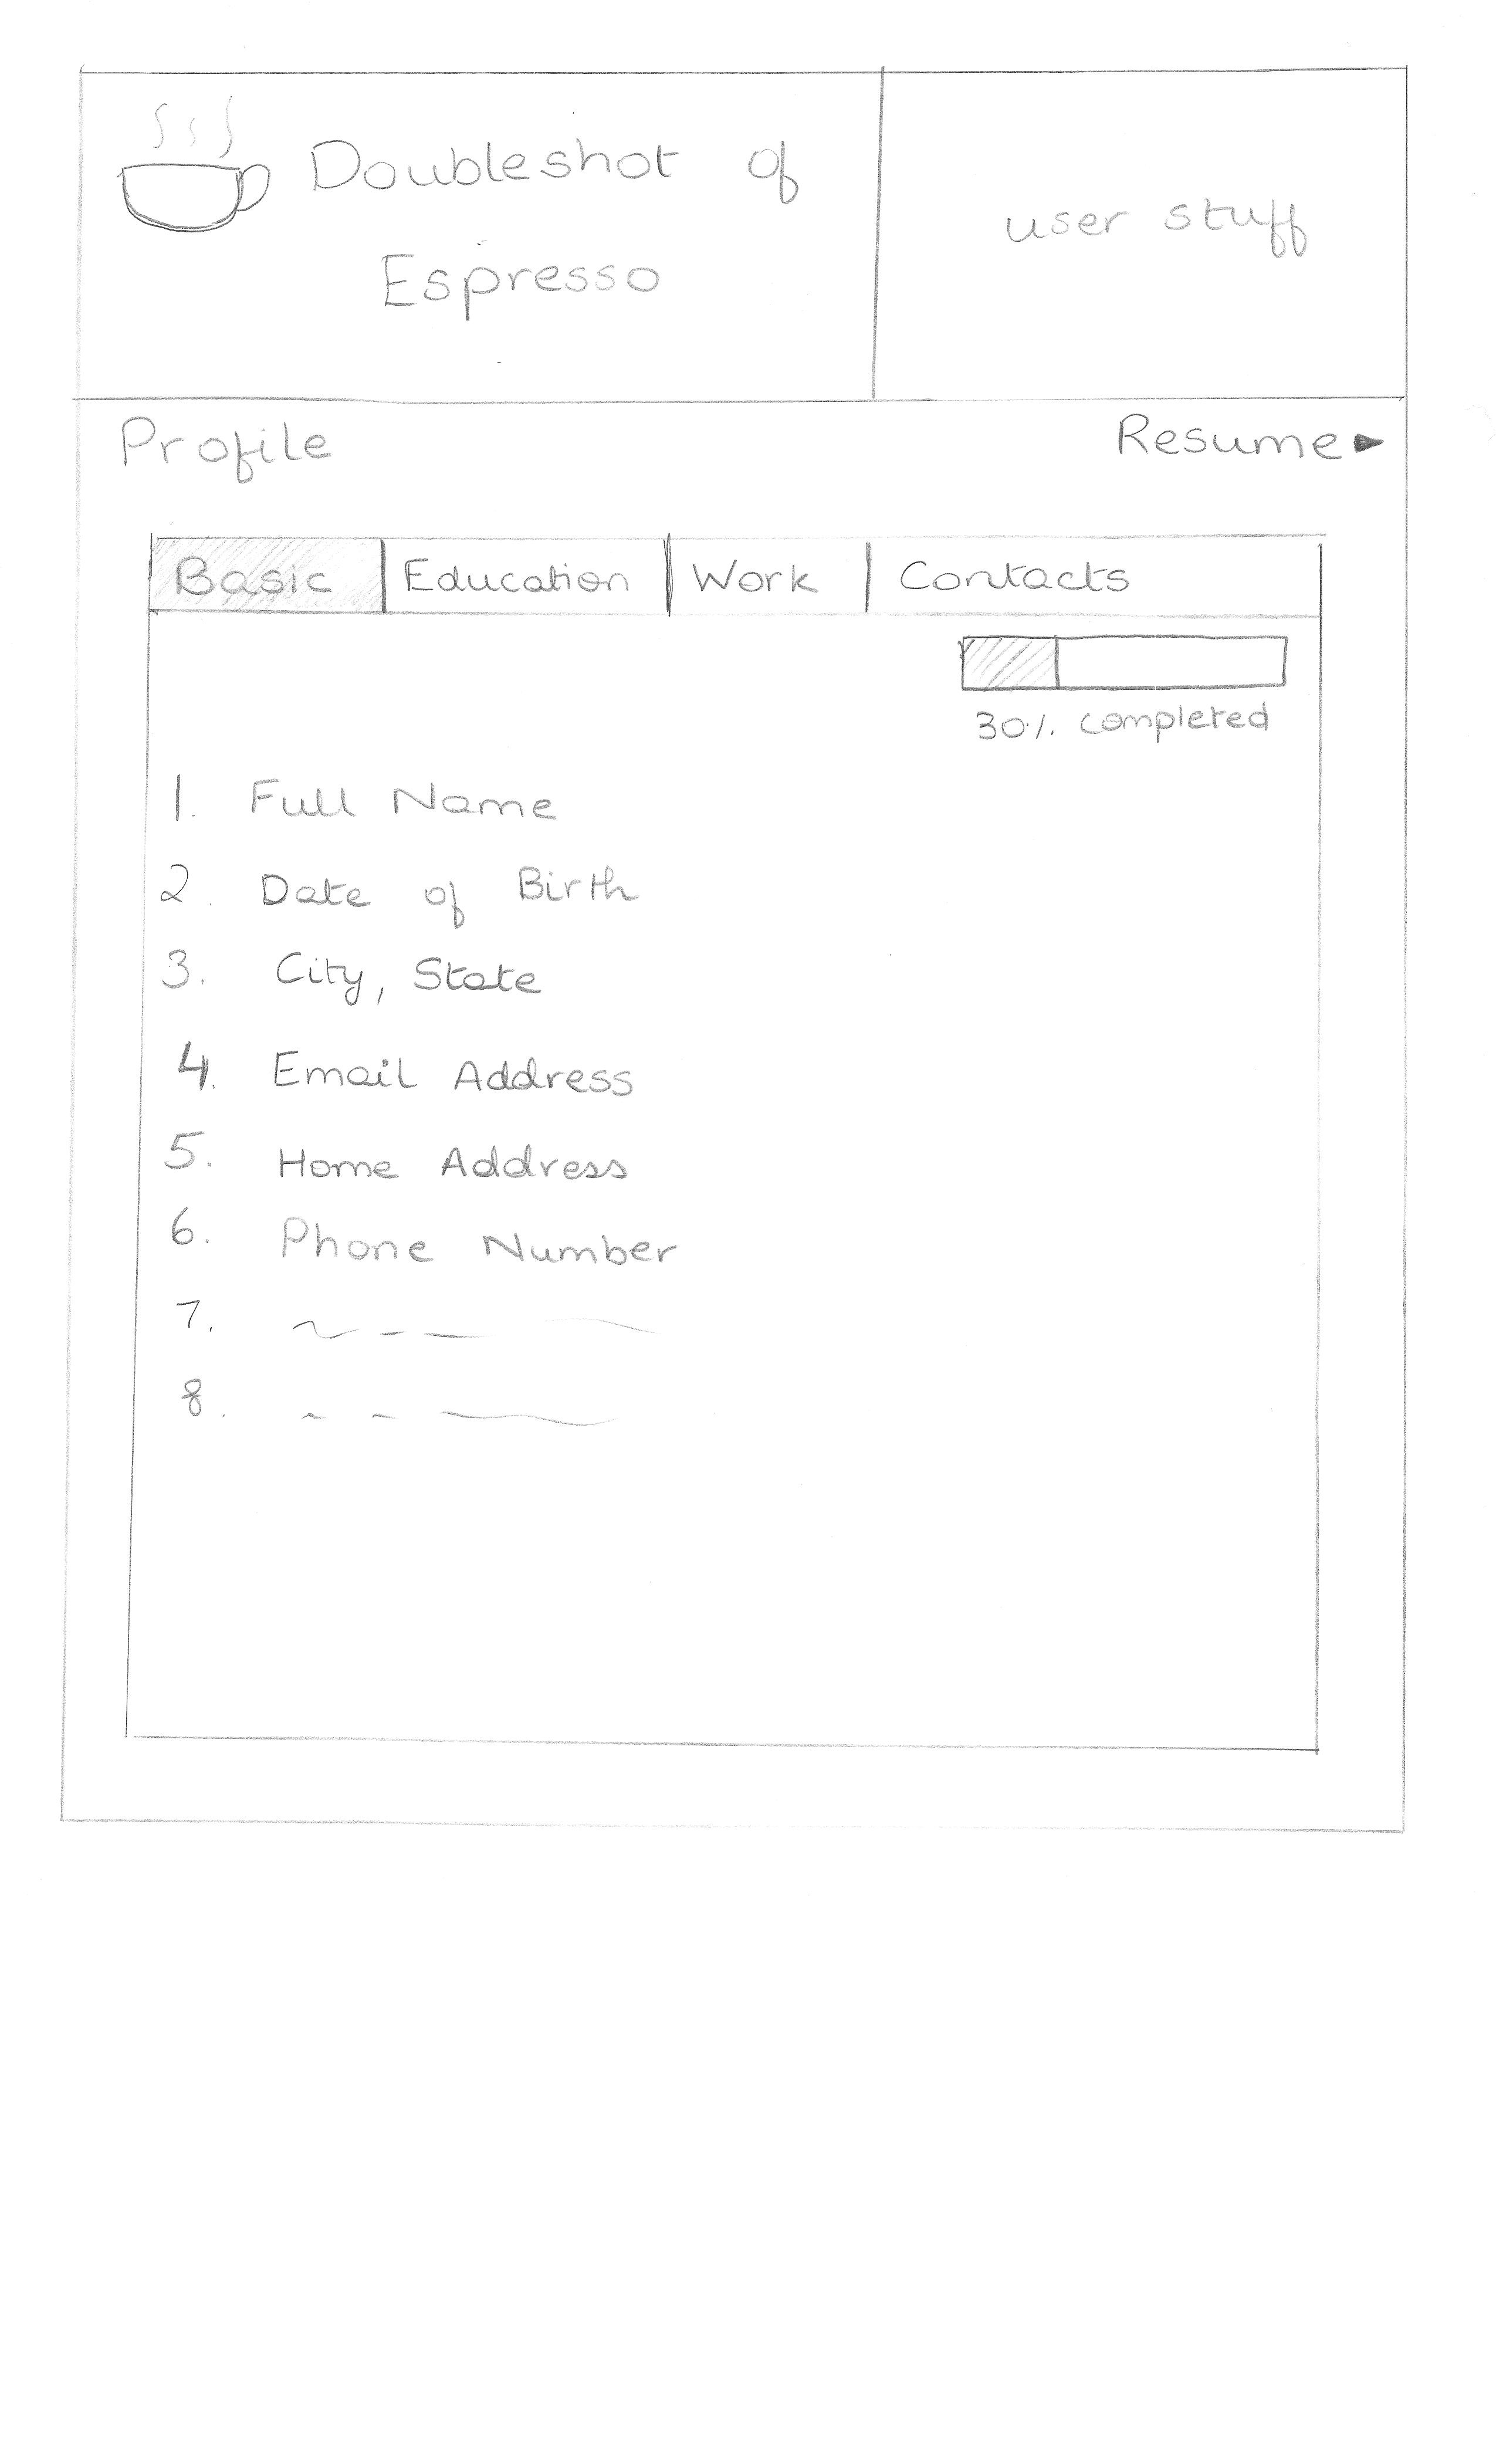 Doubleshot of
Espresso
user stuff
Profile
Resume
Basic
Education
Work
Contacts
30% completed
1. Full Name
2. Date of Birth
3. City, State
4. Email Address
5. Home Address
6. Phone Number
7.
8.